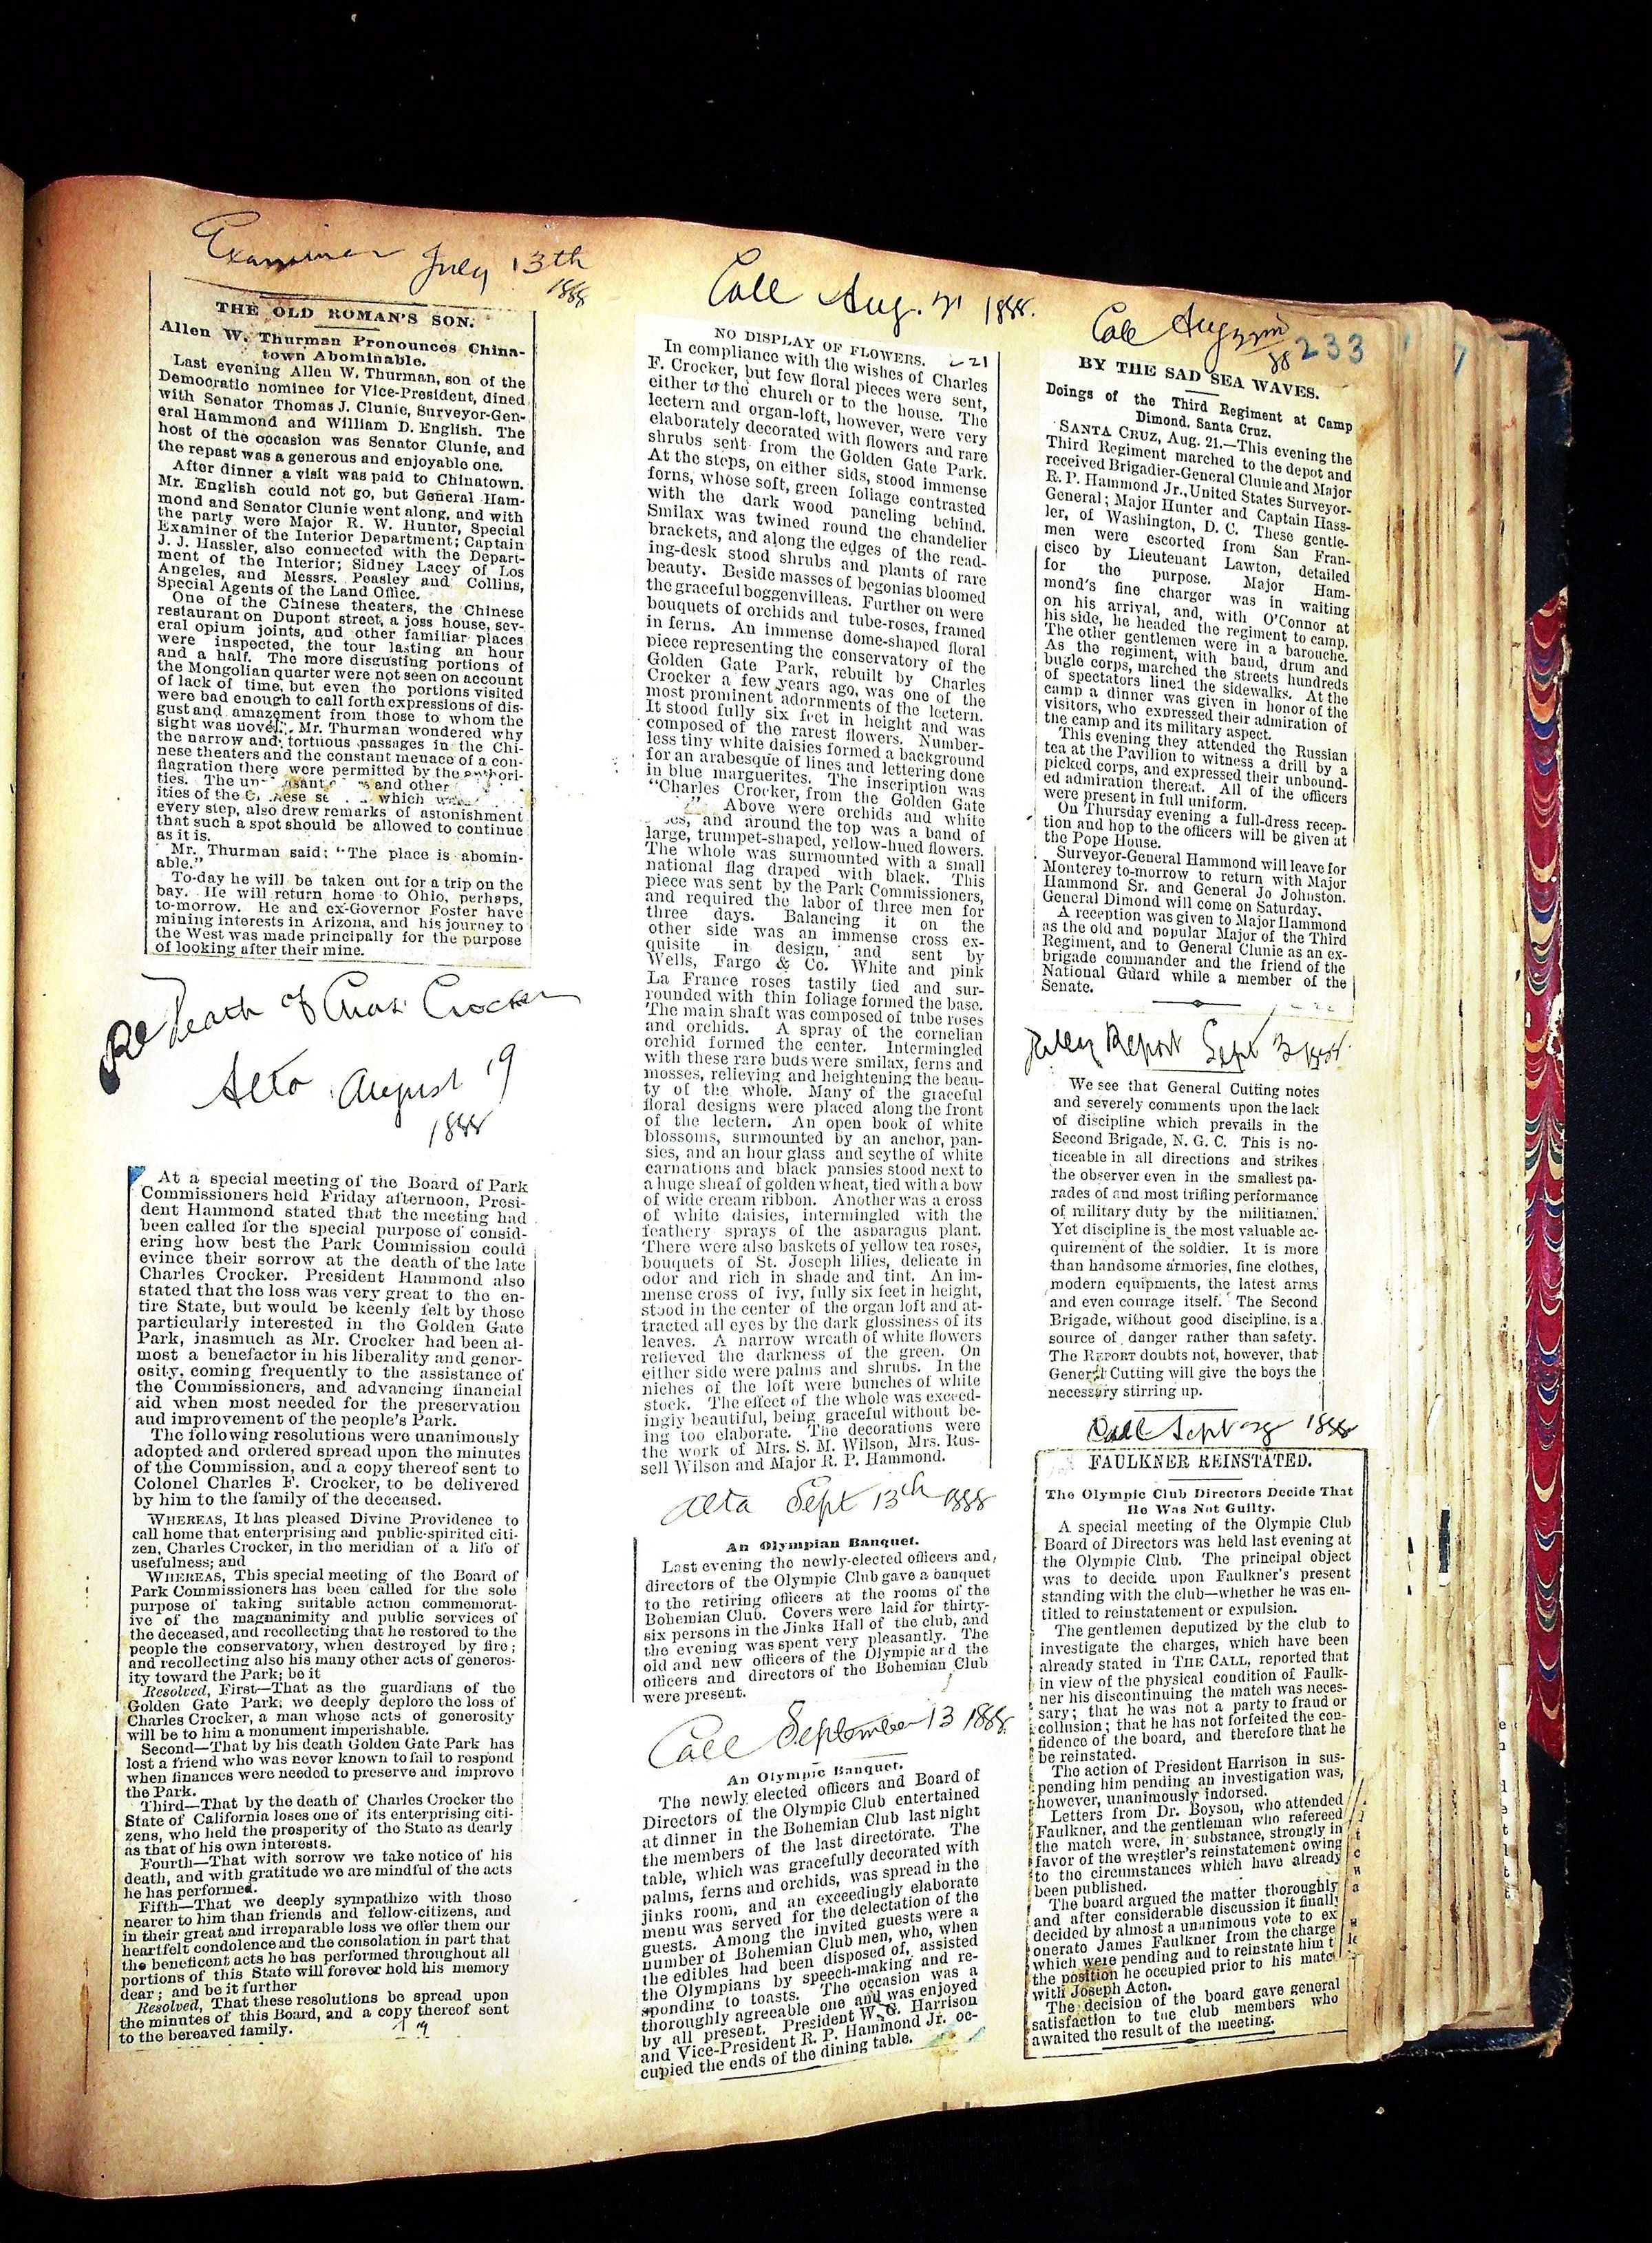 Examiner July 13th
1888
THE OLD ROMAN'S SON.
Allen W. Thurman Pronounces China-
town Abominable.
Last evening Allen W. Thurman, son of the
Democratic nominee for Vice-President, dined
with Senator Thomas J. Clunie, Surveyor-Gen-
eral Hammond and William D. English. The
host of the occasion was Senator Clunie, and
the repast was a generous and enjoyable one.
After dinner a visit was paid to Chinatown.
Mr. English could not go, but General Ham-
mond and Senator Clunie went along, and with
the party were Major R. W. Hunter, Special
Examiner of the Interior Department; Captain
J. J. Hassler, also connected with the Depart-
ment of the Interior; Sidney Lacey of Los
Angeles, and Messrs. Peasley and Collins,
Special Agents of the Land Office.
One of the Chinese theaters, the Chinese
restaurant on Dupont street, a joss house, sev-
eral opium joints, and other familiar places
were inspected, the tour lasting an hour
and a half. The more disgusting portions of
the Mongolian quarter were not seen on account
of lack of time, but even the portions visited
were bad enough to call forth expressions of dis-
gust and amazement from those to whom the
sight was novel. Mr. Thurman wondered why
the narrow and tortuous passages in the Chi-
nese theaters and the constant menace of a con-
flagration there were permitted by the authori-
ties. The and other
ities of the which
every step, also drew remarks of astonishment
that such a spot should be allowed to continue
as it is.
Mr. Thurman said: "The place is abomin-
able."
To-day he will be taken out for a trip on the
bay. He will return home to Ohio, perhaps,
to-morrow. He and ex-Governor Foster have
mining interests in Arizona, and his journey to
the West was made principally for the purpose
of looking after their mine.
Re Death of Chas. Crocker
Alta August 19
1888
At a special meeting of the Board of Park
Commissioners held Friday afternoon, Presi-
dent Hammond stated that the meeting had
been called for the special purpose of consid-
ering how best the Park Commission could
evince their sorrow at the death of the late
Charles Crocker. President Hammond also
stated that the loss was very great to the en-
tire State, but would be keenly felt by those
particularly interested in the Golden Gate
Park, inasmuch as Mr. Crocker had been al-
most a benefactor in his liberality and gener-
osity, coming frequently to the assistance of
the Commissioners, and advancing financial
aid when most needed for the preservation
and improvement of the people's Park.
The following resolutions were unanimously
adopted and ordered spread upon the minutes
of the Commission, and a copy thereof sent to
Colonel Charles F. Crocker, to be delivered
by him to the family of the deceased.
WHEREAS, It has pleased Divine Providence to
call home that enterprising and public-spirited citi-
zen, Charles Crocker, in the meridian of a life of
usefulness; and
WHEREAS, This special meeting of the Board of
Park Commissioners has been called for the sole
purpose of taking suitable action commemorat-
ive of the magnanimity and public services of
the deceased, and recollecting that he restored to the
people the conservatory, when destroyed by fire;
and recollecting also his many other acts of generos-
ity toward the Park; be it
Resolved, First—That as the guardians of the
Golden Gate Park, we deeply deplore the loss of
Charles Crocker, a man whose acts of generosity
will be to him a monument imperishable.
Second—That by his death Golden Gate Park has
lost a friend who was never known to fail to respond
when finances were needed to preserve and improve
the Park.
Third—That by the death of Charles Crocker the
State of California loses one of its enterprising citi-
zens, who held the prosperity of the State as dearly
as that of his own interests.
Fourth—That with sorrow we take notice of his
death, and with gratitude we are mindful of the acts
he has performed.
Fifth—That we deeply sympathize with those
nearer to him than friends and fellow-citizens, and
in their great and irreparable loss we offer them our
heartfelt condolence and the consolation in part that
the beneficent acts he has performed throughout all
portions of this State will forever hold his memory
dear; and be it further
Resolved, That these resolutions be spread upon
the minutes of this Board, and a copy thereof sent
to the bereaved family.
Call Aug. 21 1888.
NO DISPLAY OF FLOWERS.
In compliance with the wishes of Charles
F. Crocker, but few floral pieces were sent,
either to the church or to the house. The
lectern and organ-loft, however, were very
elaborately decorated with flowers and rare
shrubs sent from the Golden Gate Park.
At the steps, on either sids, stood immense
ferns, whose soft, green foliage contrasted
with the dark wood paneling behind.
Smilax was twined round the chandelier
brackets, and along the edges of the read-
ing-desk stood shrubs and plants of rare
beauty. Beside masses of begonias bloomed
the graceful boggenvilleas. Further on were
bouquets of orchids and tube-roses, framed
in ferns. An immense dome-shaped floral
piece representing the conservatory of the
Golden Gate Park, rebuilt by Charles
Crocker a few years ago, was one of the
most prominent adornments of the lectern.
It stood fully six feet in height and was
composed of the rarest flowers. Number-
less tiny white daisies formed a background
for an arabesque of lines and lettering done
in blue marguerites. The inscription was
"Charles Crocker, from the Golden Gate
" Above were orchids and white
, and around the top was a band of
large, trumpet-shaped, yellow-hued flowers.
The whole was surmounted with a small
national flag draped with black. This
piece was sent by the Park Commissioners,
and required the labor of three men for
three days. Balancing it on the
other side was an immense cross ex-
quisite in design, and sent by
Wells, Fargo & Co. White and pink
La France roses tastily tied and sur-
rounded with thin foliage formed the base.
The main shaft was composed of tube roses
and orchids. A spray of the cornelian
orchid formed the center. Intermingled
with these rare buds were smilax, ferns and
mosses, relieving and heightening the beau-
ty of the whole. Many of the graceful
floral designs were placed along the front
of the lectern. An open book of white
blossoms, surmounted by an anchor, pan-
sies, and an hour glass and scythe of white
carnations and black pansies stood next to
a huge sheaf of golden wheat, tied with a bow
of wide cream ribbon. Another was a cross
of white daisies, intermingled with the
feathery sprays of the asparagus plant.
There were also baskets of yellow tea roses,
bouquets of St. Joseph lilies, delicate in
odor and rich in shade and tint. An im-
mense cross of ivy, fully six feet in height,
stood in the center of the organ loft and at-
tracted all eyes by the dark glossiness of its
leaves. A narrow wreath of white flowers
relieved the darkness of the green. On
either side were palms and shrubs. In the
niches of the loft were bunches of white
stock. The effect of the whole was exceed-
ingly beautiful, being graceful without be-
ing too elaborate. The decorations were
the work of Mrs. S. M. Wilson, Mrs. Rus-
sell Wilson and Major R. P. Hammond.
Alta Sept 13th 1888
An Olympian Banquet.
Last evening the newly-elected officers and
directors of the Olympic Club gave a banquet
to the retiring officers at the rooms of the
Bohemian Club. Covers were laid for thirty-
six persons in the Jinks Hall of the club, and
the evening was spent very pleasantly. The
old and new officers of the Olympic and the
officers and directors of the Bohemian Club
were present.
Call September 13 1888
An Olympic Banquet.
The newly elected officers and Board of
Directors of the Olympic Club entertained
at dinner in the Bohemian Club last night
the members of the last directorate. The
table, which was gracefully decorated with
palms, ferns and orchids, was spread in the
jinks room, and an exceedingly elaborate
menu was served for the delectation of the
guests. Among the invited guests were a
number of Bohemian Club men, who, when
the edibles had been disposed of, assisted
the Olympians by speech-making and re-
sponding to toasts. The occasion was a
thoroughly agreeable one and was enjoyed
by all present. President W. G. Harrison
and Vice-President R. P. Hammond Jr. oc-
cupied the ends of the dining table.
Call Aug 22nd
88
233
BY THE SAD SEA WAVES.
Doings of the Third Regiment at Camp
Dimond, Santa Cruz.
SANTA CRUZ, Aug. 21.—This evening the
Third Regiment marched to the depot and
received Brigadier-General Clunie and Major
R. P. Hammond Jr., United States Surveyor-
General; Major Hunter and Captain Hass-
ler, of Washington, D. C. These gentle-
men were escorted from San Fran-
cisco by Lieutenant Lawton, detailed
for the purpose. Major Ham-
mond's fine charger was in waiting
on his arrival, and, with O'Connor at
his side, he headed the regiment to camp.
The other gentlemen were in a barouche.
As the regiment, with band, drum and
bugle corps, marched the streets hundreds
of spectators lined the sidewalks. At the
camp a dinner was given in honor of the
visitors, who expressed their admiration of
the camp and its military aspect.
This evening they attended the Russian
tea at the Pavilion to witness a drill by a
picked corps, and expressed their unbound-
ed admiration thereat. All of the officers
were present in full uniform.
On Thursday evening a full-dress recep-
tion and hop to the officers will be given at
the Pope House.
Surveyor-General Hammond will leave for
Monterey to-morrow to return with Major
Hammond Sr. and General Jo Johnston.
General Dimond will come on Saturday.
A reception was given to Major Hammond
as the old and popular Major of the Third
Regiment, and to General Clunie as an ex-
brigade commander and the friend of the
National Guard while a member of the
Senate.
Report Sept 3 1888
We see that General Cutting notes
and severely comments upon the lack
of discipline which prevails in the
Second Brigade, N. G. C. This is no-
ticeable in all directions and strikes
the observer even in the smallest pa-
rades of and most trifling performance
of military duty by the militiamen.
Yet discipline is the most valuable ac-
quirement of the soldier. It is more
than handsome armories, fine clothes,
modern equipments, the latest arms
and even courage itself. The Second
Brigade, without good discipline, is a
source of danger rather than safety.
The REPORT doubts not, however, that
General Cutting will give the boys the
necessary stirring up.
Call Sept 1888
FAULKNER REINSTATED.
The Olympic Club Directors Decide That
He Was Not Guilty.
A special meeting of the Olympic Club
Board of Directors was held last evening at
the Olympic Club. The principal object
was to decide upon Faulkner's present
standing with the club—whether he was en-
titled to reinstatement or expulsion.
The gentlemen deputized by the club to
investigate the charges, which have been
already stated in THE CALL, reported that
in view of the physical condition of Faulk-
ner his discontinuing the match was neces-
sary; that he was not a party to fraud or
collusion; that he has not forfeited the con-
fidence of the board, and therefore that he
be reinstated.
The action of President Harrison in sus-
pending him pending an investigation was,
however, unanimously indorsed.
Letters from Dr. Boyson, who attended
Faulkner, and the gentleman who refereed
the match were, in substance, strongly in
favor of the wrestler's reinstatement owing
to the circumstances which have already
been published.
The board argued the matter thoroughly
and after considerable discussion it finally
decided by almost a unanimous vote to ex
onerate James Faulkner from the charge
which were pending and to reinstate him t
the position he occupied prior to his match
with Joseph Acton.
The decision of the board gave general
satisfaction to the club members who
awaited the result of the meeting.